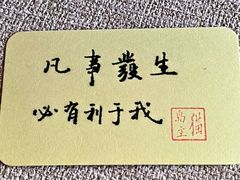 凡事發生
必有利于我